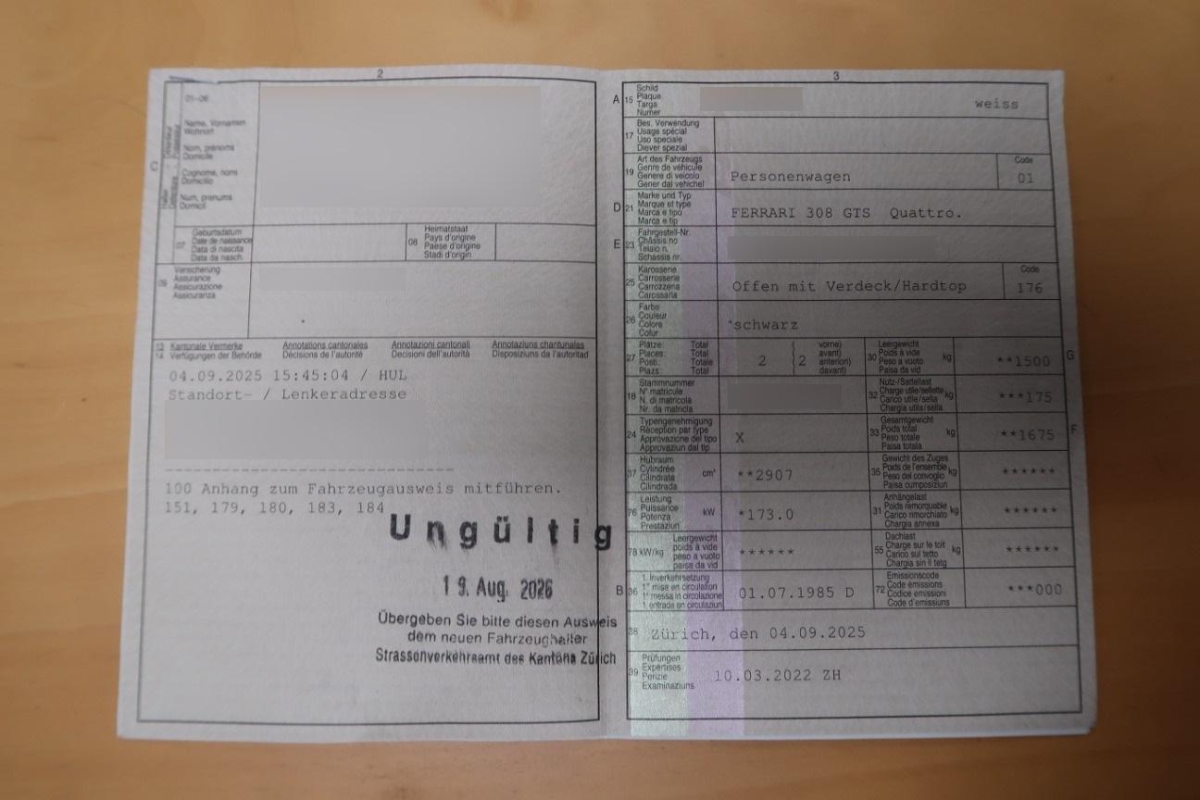 2
01-06
Name, Vornamen
Wohnort
Nom, prénoms
Domicile
C
Cognome, nomi
Domicilio
Num, prenums
Domicil
07
Geburtsdatum
Date de naissance
Data di nascita
Data da nasch.
08
Heimatstaat
Pays d'origine
Paese d'origine
Stadi d'origin
09
Versicherung
Assurance
Assicurazione
Assicuranza
13 Kantonale Vermerke Annotations cantonales Annotazioni cantonali Annotaziuns chantunalas
14 Verfügungen der Behörde Décisions de l'autorité Decisioni dell'autorità Disposiziuns da l'autoritad
04.09.2025 15:45:04 / HUL
Standort- / Lenkeradresse
100 Anhang zum Fahrzeugausweis mitführen.
151, 179, 180, 183, 184
Ungültig
19. Aug. 2026
Übergeben Sie bitte diesen Ausweis
dem neuen Fahrzeughalter
Strassenverkehrsamt des Kantons Zürich
3
A 15
Schild
Plaque
Targa
Numer
weiss
17
Bes. Verwendung
Usage spécial
Uso speciale
Diever spezial
19
Art des Fahrzeugs
Genre de véhicule
Genere di veicolo
Gener dal vehichel
Personenwagen
Code
01
D 21
Marke und Typ
Marque et type
Marca e tipo
Marca e tip
FERRARI 308 GTS Quattro.
E 23
Fahrgestell-Nr.
Châssis no
Telaio n.
Schassis nr.
25
Karosserie
Carrosserie
Carrozzeria
Carossaria
Offen mit Verdeck/Hardtop
Code
176
26
Farbe
Couleur
Colore
Colur
schwarz
27
Plätze: Total
Places: Total
Posti: Totale
Plazs: Total
2
( vorne)
avant)
anteriori)
davant)
2
30
Leergewicht
Poids à vide
Peso a vuoto
Paisa da vid
kg
**1500
G
18
Stammnummer
N° matricule
N. di matricola
Nr. da matricla
32
Nutz-/Sattellast
Charge utile/sellette
Carico utile/sella
Chargia utila/sella
kg
***175
24
Typengenehmigung
Réception par type
Approvazione del tipo
Approvaziun dal tip
X
33
Gesamtgewicht
Poids total
Peso totale
Paisa totala
kg
**1675
F
37
Hubraum
Cylindrée
Cilindrata
Cilindrada
cm³
**2907
35
Gewicht des Zuges
Poids de l'ensemble
Peso del convoglio
Paisa cumposiziun
kg
******
76
Leistung
Puissance
Potenza
Prestaziun
kW
*173.0
31
Anhängelast
Poids remorquable
Carico rimorchiato
Chargia annexa
kg
******
78 kW/kg
Leergewicht
poids à vide
peso a vuoto
paisa da vid
******
55
Dachlast
Charge sur le toit
Carico sul tetto
Chargia sin il tetg
kg
******
B 36
1. Inverkehrsetzung
1re mise en circulation
1a messa in circolazione
1. entrada en circulaziun
01.07.1985 D
72
Emissionscode
Code émissions
Codice emissioni
Code d'emissiuns
***000
38
Zürich, den 04.09.2025
39
Prüfungen
Expertises
Perizie
Examinaziuns
10.03.2022 ZH